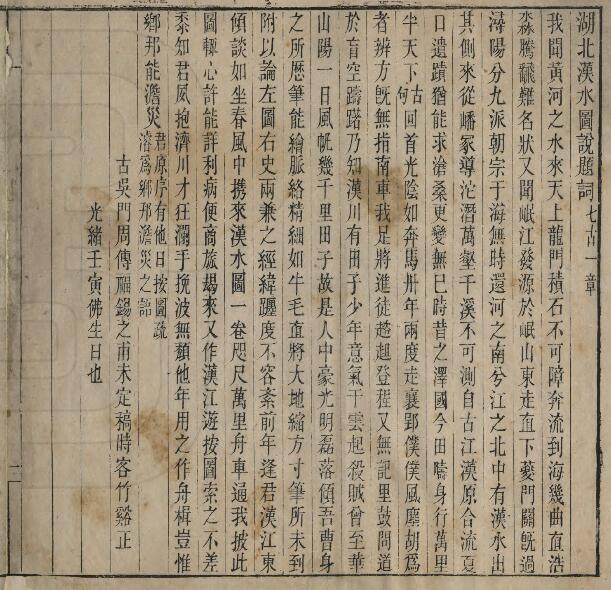 湖北漢水圖說題詞七古一章
我聞黃河之水來天上龍門積石不可障奔流到海幾曲直浩
淼騰飜難名狀又聞岷江發源於岷山東走直下夔門關旣過
潯陽分九派朝宗于海無時還河之南兮江之北中有漢水出
其側來從嶓冢導沱潛萬壑千溪不可測自古江漢原合流夏
口遺蹟猶能求滄桑更變無已時昔之澤國今田疇身行萬里
半天下古句回首光陰如奔馬卅年兩度走襄鄖僕僕風塵胡爲
者辨方旣無指南車我足將進徒趑趄登程又無記里鼓問道
於盲空躊躇乃知漢川有田子少年意氣干雲起殺賊曾至華
山陽一日風帆幾千里田子故是人中豪光明磊落傾吾曹身
之所歷筆能繪脈絡精細如牛毛直將大地縮方寸筆所未到
附以論左圖右史兩兼之經緯躔度不容紊前年逢君漢江東
傾談如坐春風中携來漢水圖一卷咫尺萬里舟車通我披此
圖輒心許能詳利病便商旅朅來又作漢江遊按圖索之不差
黍知君夙抱濟川才狂瀾手挽波無頹他年用之作舟楫豈惟
鄉邦能澹災君原序有他日按圖疏瀹爲鄉邦澹災之語
古吳門周傅䤭錫之甫未定稿時客竹谿正
光緒壬寅佛生日也